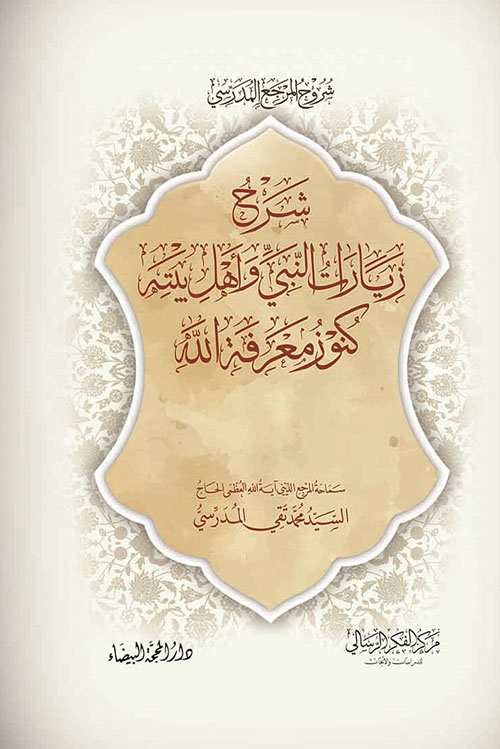 شروح المرجع المدرسي
شرح
زيارات النبي وأهل بيته
كنوز معرفة الله
سماحة المرجع الديني آية الله العظمى الحاج
السيد محمد تقي المدرسي
مركز الفكر الرسالي
للدراسات والأبحاث
دار المحجة البيضاء